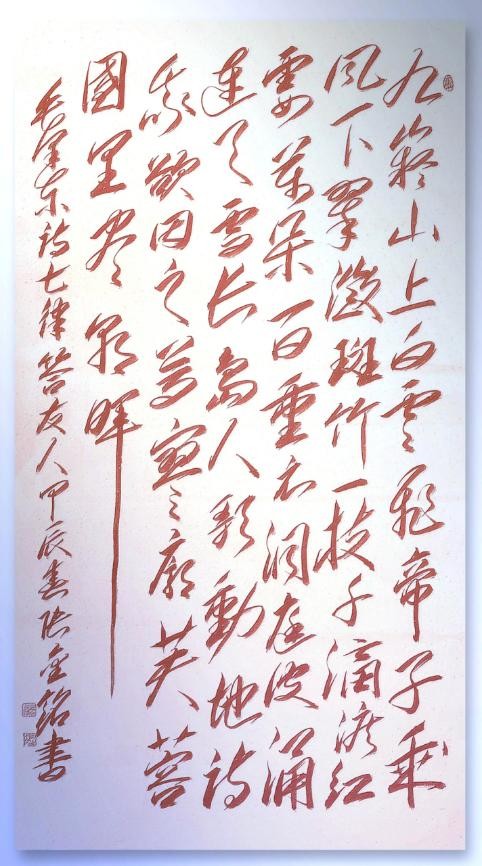 九嶷山上白雲飛帝子乘
风下翠微斑竹一枝千滴淚红
霞萬朵百重衣洞庭波涌
連天雪長島人歌動地诗
我欲因之夢寥廓芙蓉
國里尽朝晖
毛澤东诗七律答友人甲辰春张金書